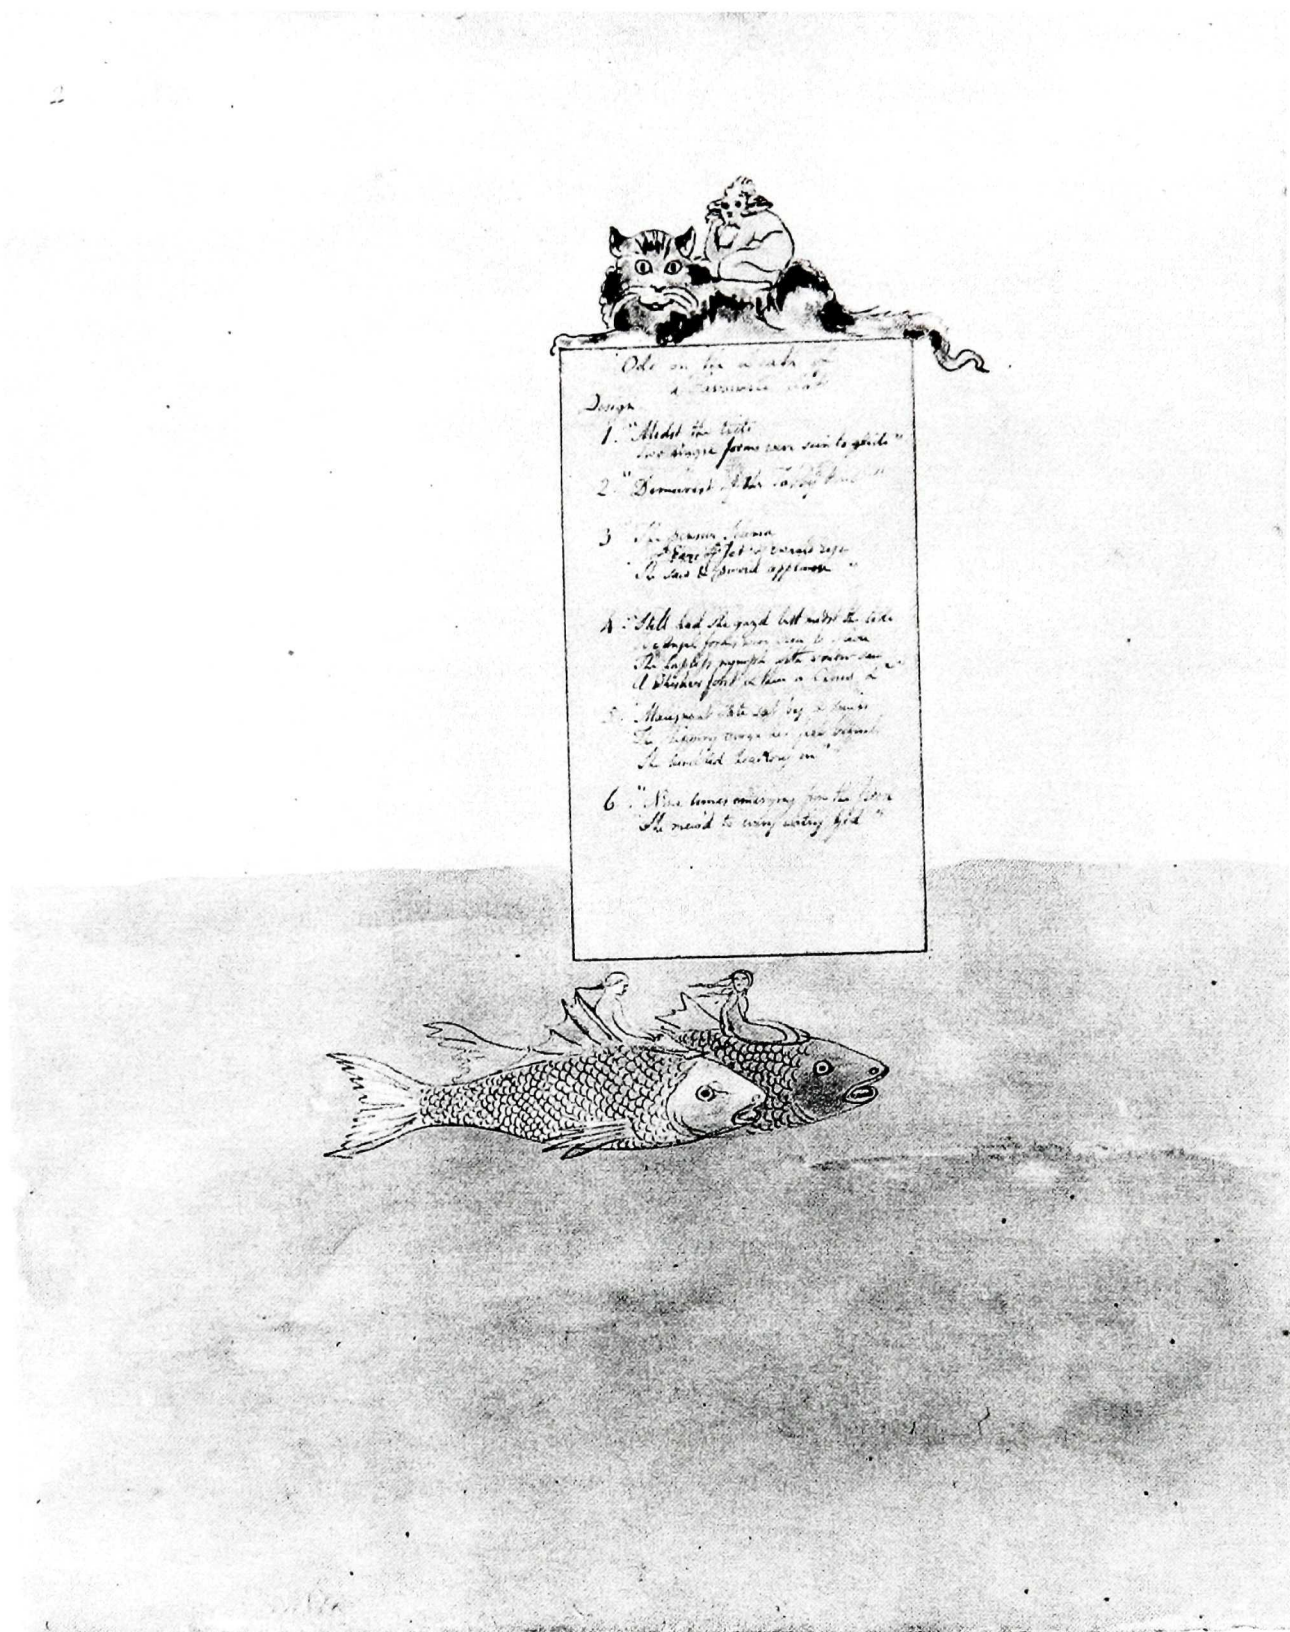 "Ode on the Death of
a Favourite Cat"
Design
1. "Midst the tide
Two angel forms were seen to glide"
2. "Demurest of the Tabby kind"
3 "The pensive Selima
Her Ears of Jet & Emrald Eyes
She saw & purr'd applause"
4. "Still had she gazd but midst the tide
Two Angel forms were seen to glide
The hapless nymph with wonder saw
A Whisker first & then a Claw &c"
5. "Malignant Fate sat by & smild
The slippery verge her feet beguild
She tumbled headlong in"
6. "Nine times emerging from the flood
"She mew'd to every watry God"